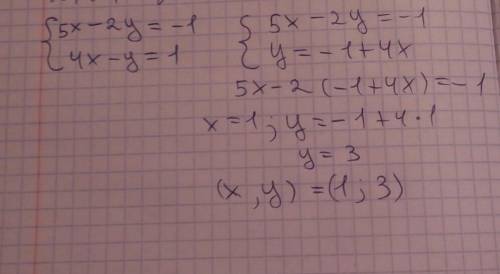 {5x-2y=-1
{4x-y=1
{5x-2y=-1
{y=-1+4x
5x-2(-1+4x)=-1
x=1; y=-1+4·1
y=3
(x,y)=(1;3)